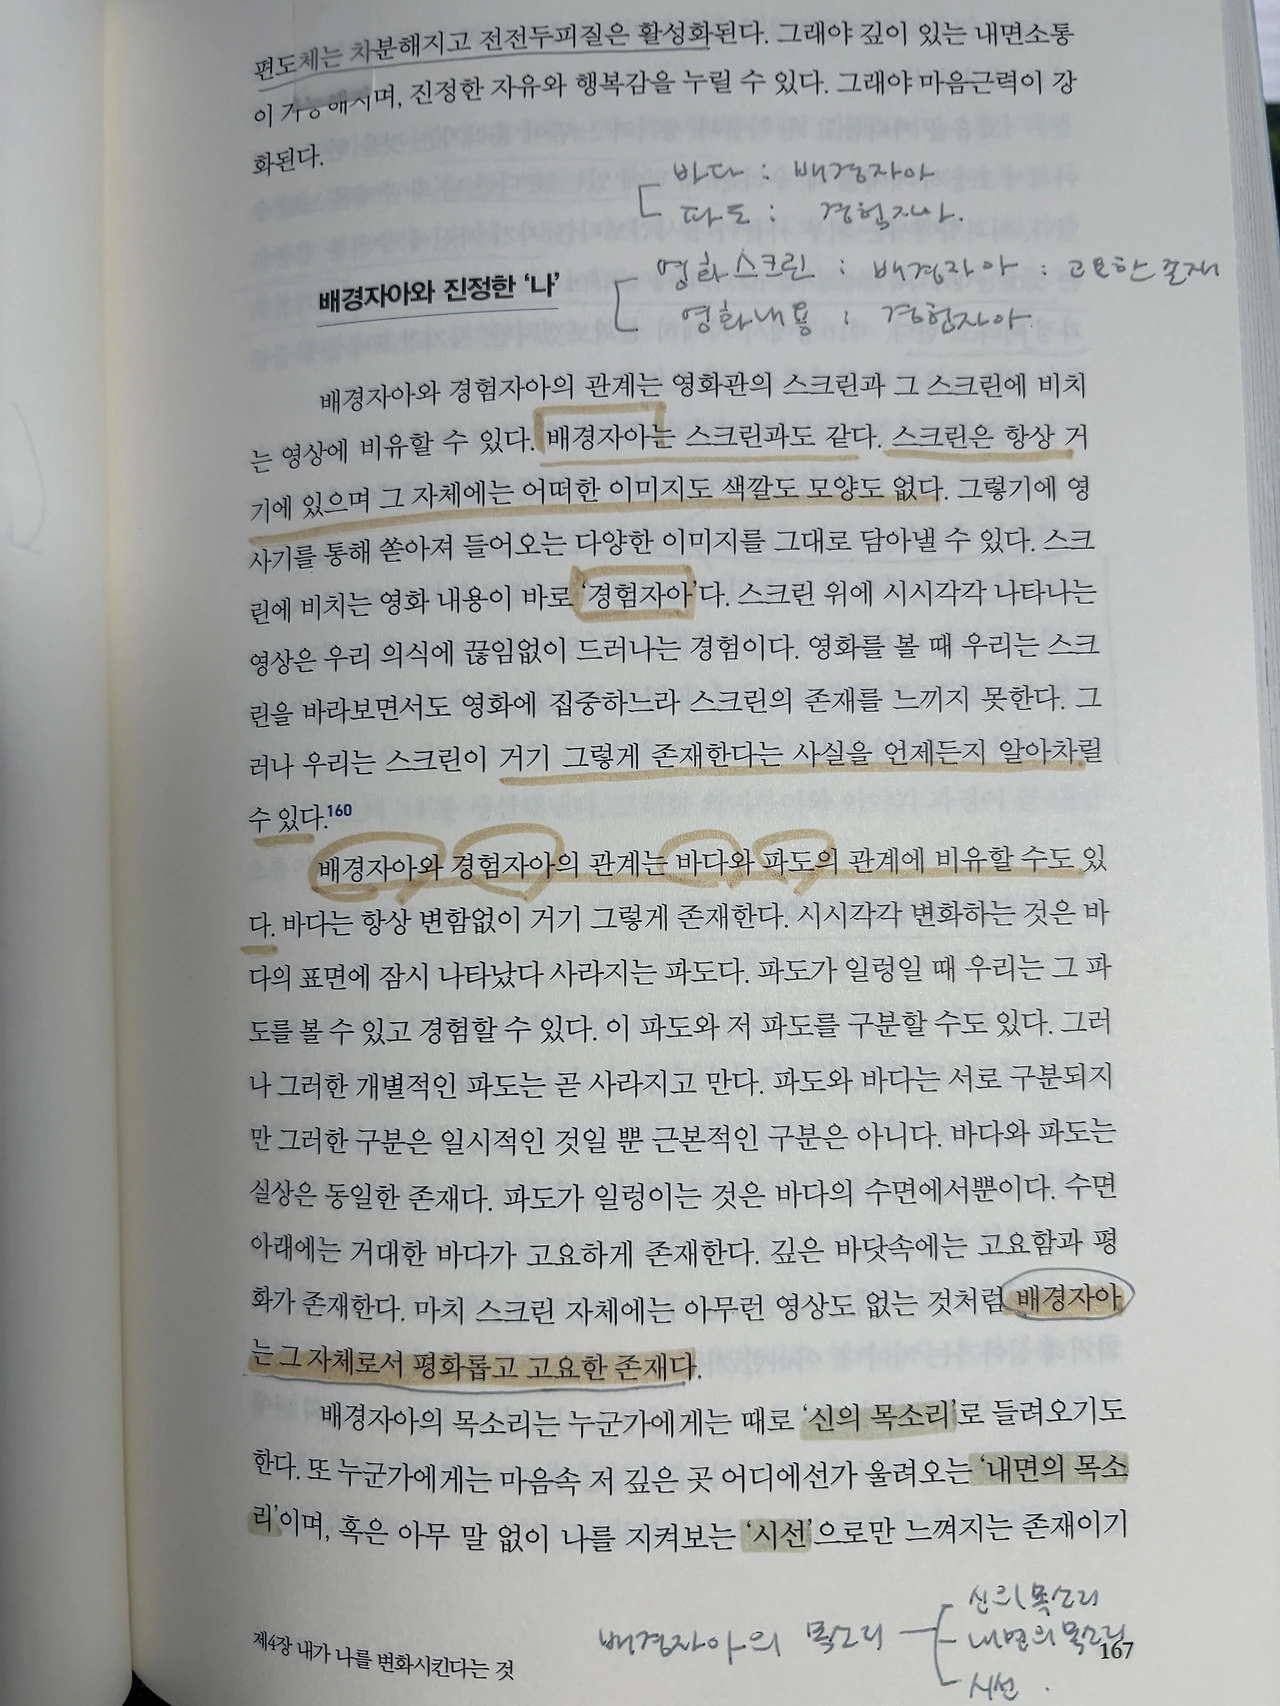 편도체는 차분해지고 전전두피질은 활성화된다. 그래야 깊이 있는 내면소통
이 가능해지며, 진정한 자유와 행복감을 누릴 수 있다. 그래야 마음근력이 강
화된다.
바다 : 배경자아
파도 : 경험자아.
영화스크린 : 배경자아 : 고요한 존재
영화내용 : 경험자아.
배경자아와 진정한 ‘나’
배경자아와 경험자아의 관계는 영화관의 스크린과 그 스크린에 비치
는 영상에 비유할 수 있다. 배경자아는 스크린과도 같다. 스크린은 항상 거
기에 있으며 그 자체에는 어떠한 이미지도 색깔도 모양도 없다. 그렇기에 영
사기를 통해 쏟아져 들어오는 다양한 이미지를 그대로 담아낼 수 있다. 스크
린에 비치는 영화 내용이 바로 ‘경험자아’다. 스크린 위에 시시각각 나타나는
영상은 우리 의식에 끊임없이 드러나는 경험이다. 영화를 볼 때 우리는 스크
린을 바라보면서도 영화에 집중하느라 스크린의 존재를 느끼지 못한다. 그
러나 우리는 스크린이 거기 그렇게 존재한다는 사실을 언제든지 알아차릴
수 있다.160
배경자아와 경험자아의 관계는 바다와 파도의 관계에 비유할 수도 있
다. 바다는 항상 변함없이 거기 그렇게 존재한다. 시시각각 변화하는 것은 바
다의 표면에 잠시 나타났다 사라지는 파도다. 파도가 일렁일 때 우리는 그 파
도를 볼 수 있고 경험할 수 있다. 이 파도와 저 파도를 구분할 수도 있다. 그러
나 그러한 개별적인 파도는 곧 사라지고 만다. 파도와 바다는 서로 구분되지
만 그러한 구분은 일시적인 것일 뿐 근본적인 구분은 아니다. 바다와 파도는
실상은 동일한 존재다. 파도가 일렁이는 것은 바다의 수면에서뿐이다. 수면
아래에는 거대한 바다가 고요하게 존재한다. 깊은 바닷속에는 고요함과 평
화가 존재한다. 마치 스크린 자체에는 아무런 영상도 없는 것처럼 배경자아
는 그 자체로서 평화롭고 고요한 존재다.
배경자아의 목소리는 누군가에게는 때로 ‘신의 목소리’로 들려오기도
한다. 또 누군가에게는 마음속 저 깊은 곳 어디에선가 울려오는 ‘내면의 목소
리’이며, 혹은 아무 말 없이 나를 지켜보는 ‘시선’으로만 느껴지는 존재이기
배경자아의 목소리
신의 목소리
내면의 목소리
시선.
제4장 내가 나를 변화시킨다는 것
167